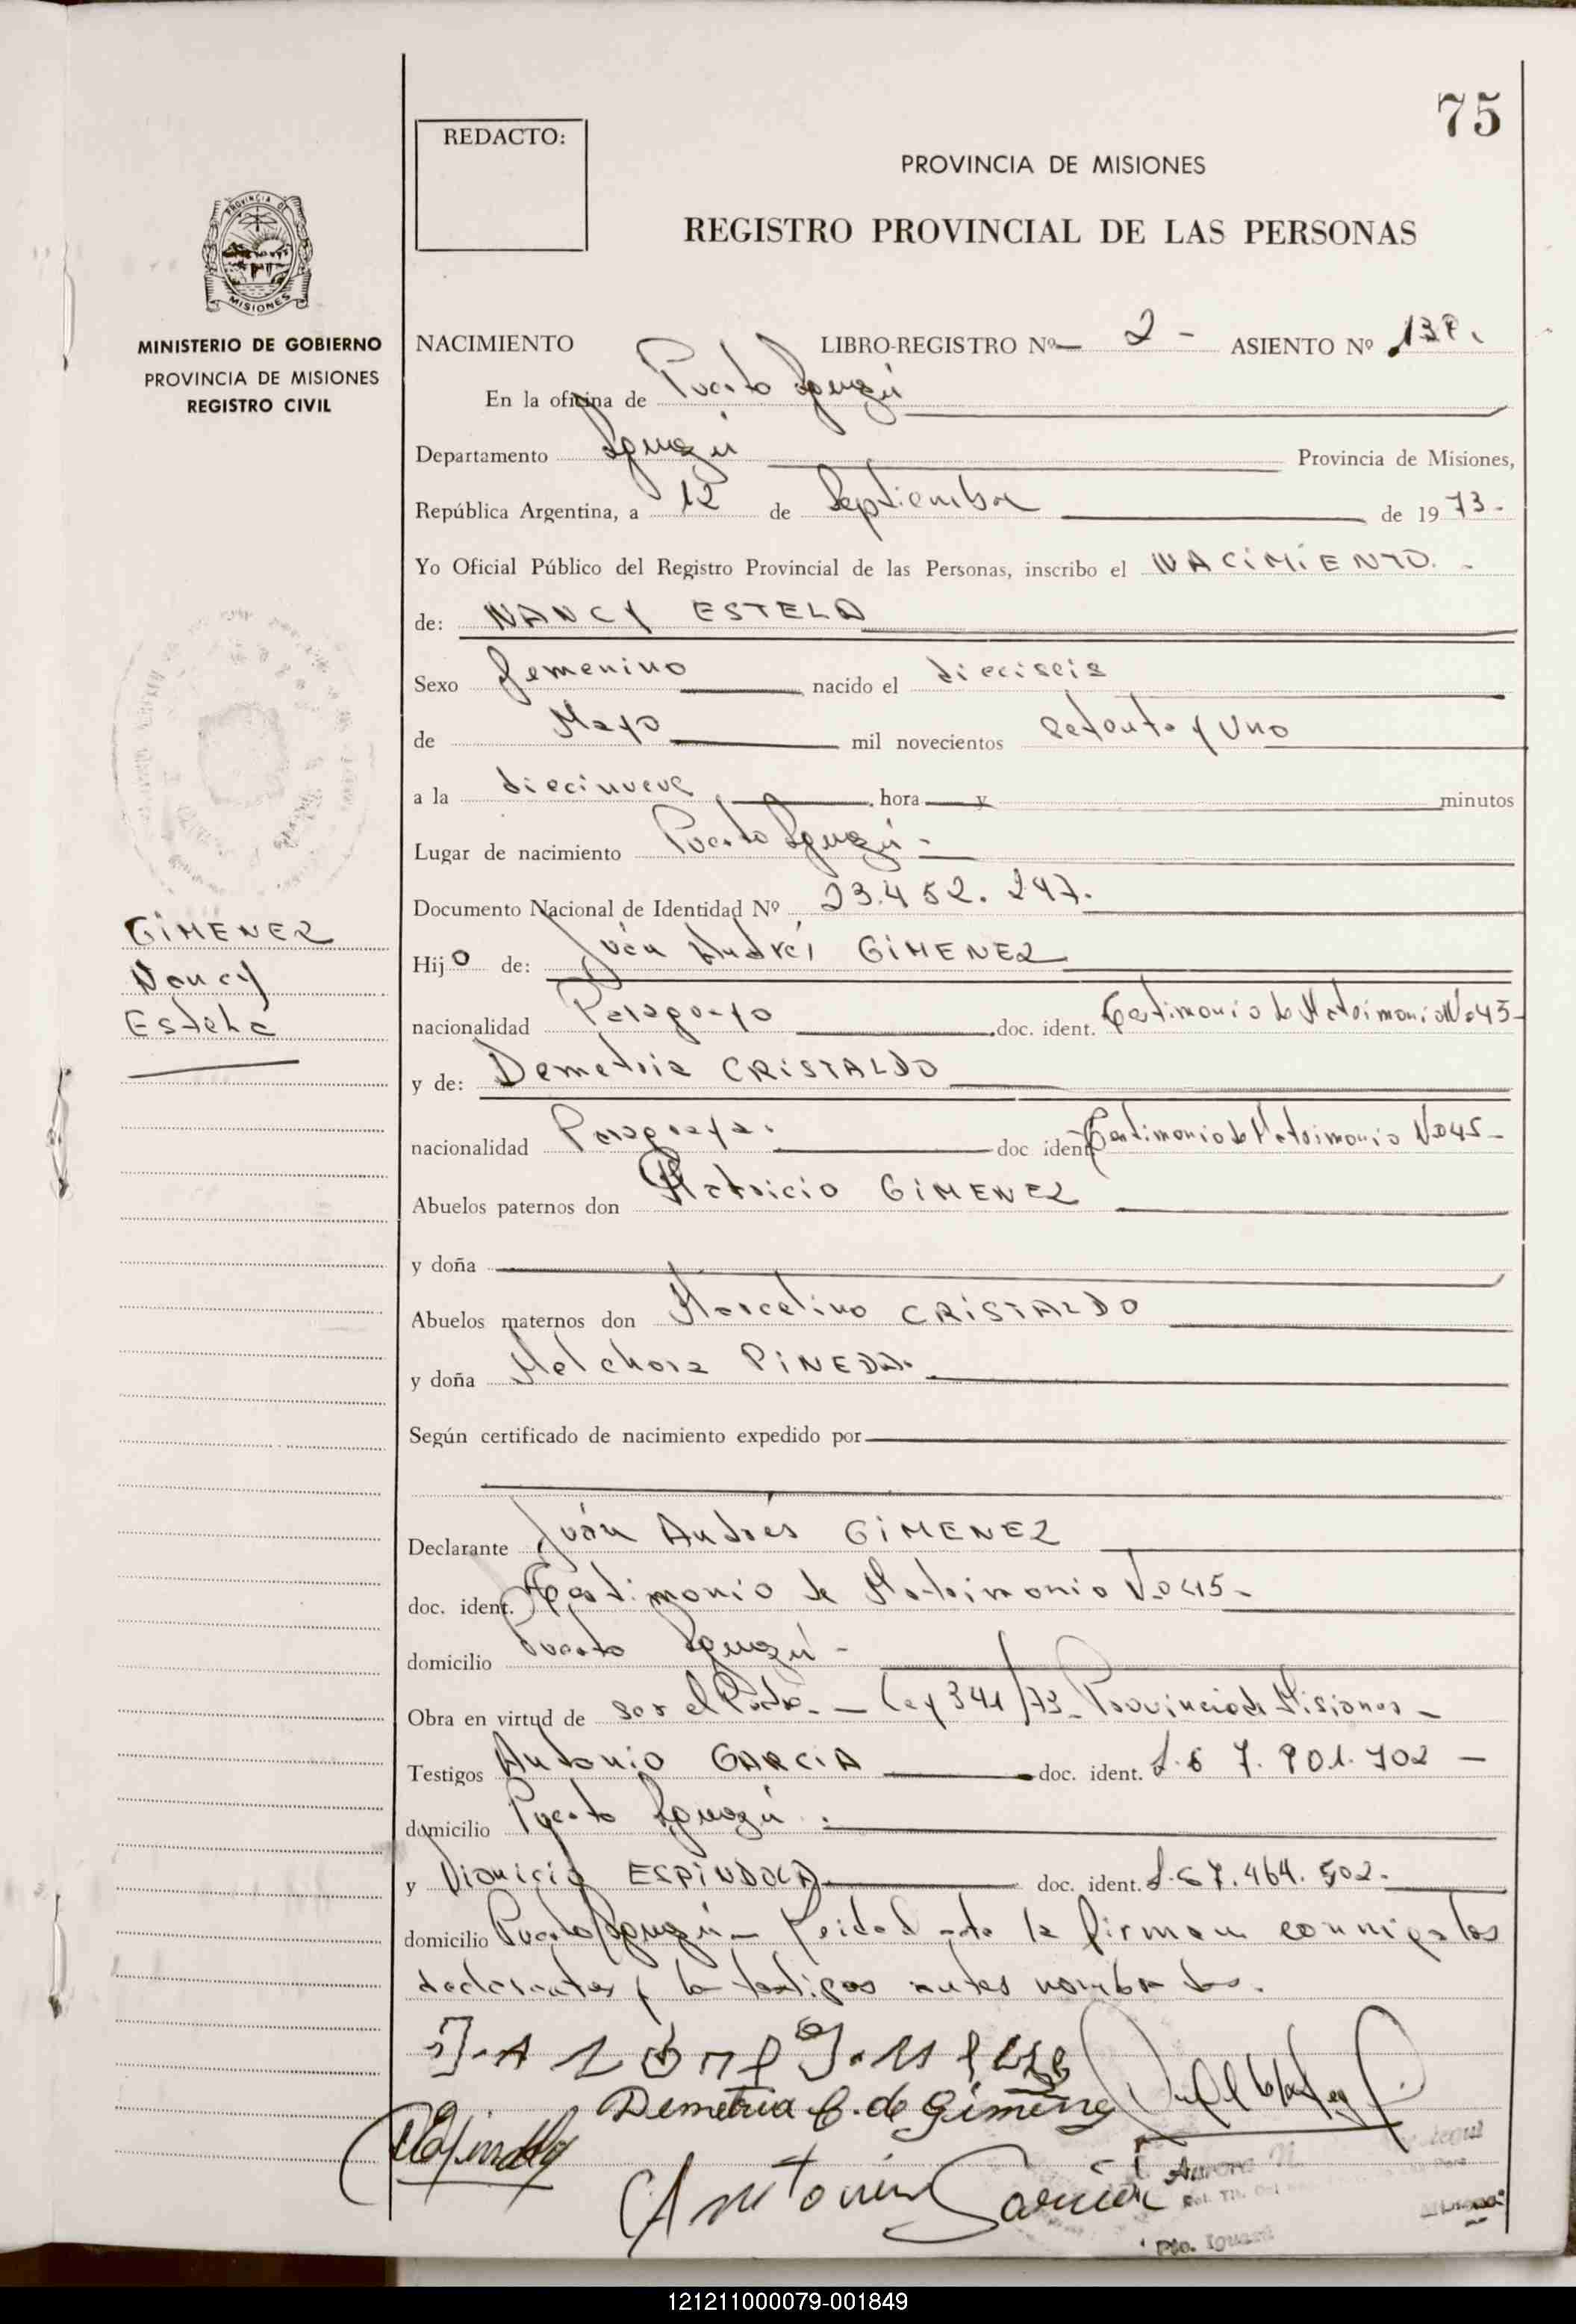 75
REDACTO:
PROVINCIA DE MISIONES
REGISTRO PROVINCIAL DE LAS PERSONAS
PROVINCIA DE
MISIONES
MINISTERIO DE GOBIERNO
PROVINCIA DE MISIONES
REGISTRO CIVIL
NACIMIENTO LIBRO-REGISTRO Nº 2 - ASIENTO Nº
En la oficina de Puerto Iguazú
Departamento Iguazú Provincia de Misiones,
República Argentina, a 12 de Septiembre de 1973-
Yo Oficial Público del Registro Provincial de las Personas, inscribo el NACIMIENTO. -
de: NANCY ESTELA
Sexo femenino nacido el dieciseis
de Mayo mil novecientos setenta y uno
a la diecinueve hora y minutos
Lugar de nacimiento Puerto Iguazú -
Documento Nacional de Identidad Nº 23.452.247.
GIMENEZ
Nancy
Estela
Hijo de: Juan Andrés GIMENEZ
nacionalidad Paraguayo doc. ident. Testimonio de Matrimonio No 45-
y de: Demetria CRISTALDO
nacionalidad Paraguaya. doc ident Testimonio de Matrimonio No 45-
Abuelos paternos don Patricio GIMENEZ
y doña
Abuelos maternos don Marcelino CRISTALDO
y doña Melchora PINEDA.
Según certificado de nacimiento expedido por
Declarante Juan Andrés GIMENEZ
doc. ident. Testimonio de Matrimonio No 45-
domicilio Puerto Iguazú -
Obra en virtud de ser el Padre. - Ley 341/73- Provincia de Misiones -
Testigos Antonio GARCIA doc. ident. 7.901.702 -
domicilio Puerto Iguazú.
y Dionicio ESPINDOLA doc. ident. 7.464.502-
domicilio Puerto Iguazú - Leida el acta la firman conmigo los
declarantes y los testigos antes nombrados.
Demetria C. de Gimenez
Antonio Garcia
Pto. Iguazú
121211000079-001849